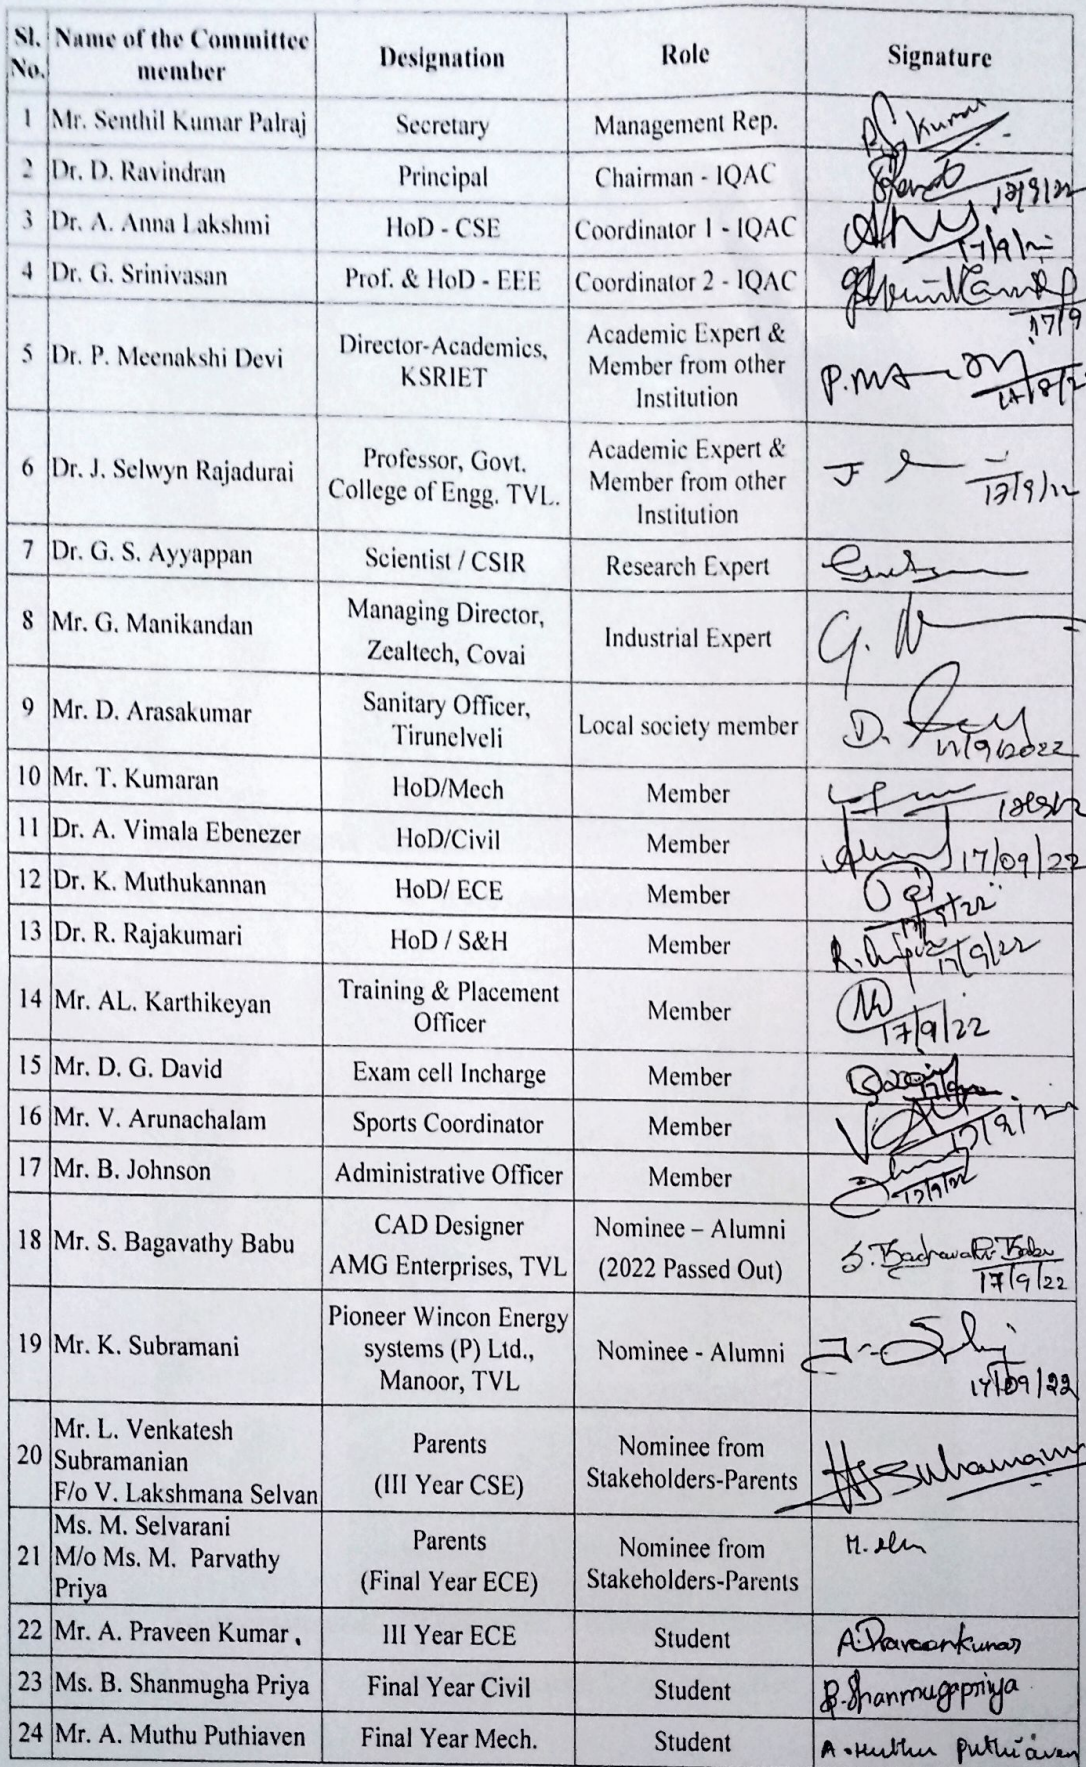 Sl. No. Name of the Committee member Designation Role Signature
1 Mr. Senthil Kumar Palraj Secretary Management Rep. P.S. Kumar
2 Dr. D. Ravindran Principal Chairman - IQAC
3 Dr. A. Anna Lakshmi HoD - CSE Coordinator 1 - IQAC
4 Dr. G. Srinivasan Prof. & HoD - EEE Coordinator 2 - IQAC 17/9
5 Dr. P. Meenakshi Devi Director-Academics, KSRIET Academic Expert & Member from other Institution
6 Dr. J. Selwyn Rajadurai Professor, Govt. College of Engg. TVL. Academic Expert & Member from other Institution
7 Dr. G. S. Ayyappan Scientist / CSIR Research Expert
8 Mr. G. Manikandan Managing Director, Zealtech, Covai Industrial Expert G.
9 Mr. D. Arasakumar Sanitary Officer, Tirunelveli Local society member D.
10 Mr. T. Kumaran HoD/Mech Member
11 Dr. A. Vimala Ebenezer HoD/Civil Member 17/09/22
12 Dr. K. Muthukannan HoD/ ECE Member
13 Dr. R. Rajakumari HoD / S&H Member 17/9/22
14 Mr. AL. Karthikeyan Training & Placement Officer Member 17/9/22
15 Mr. D. G. David Exam cell Incharge Member
16 Mr. V. Arunachalam Sports Coordinator Member
17 Mr. B. Johnson Administrative Officer Member
18 Mr. S. Bagavathy Babu CAD Designer AMG Enterprises, TVL Nominee – Alumni (2022 Passed Out) 17/9/22
19 Mr. K. Subramani Pioneer Wincon Energy systems (P) Ltd., Manoor, TVL Nominee - Alumni 17/09/22
20 Mr. L. Venkatesh Subramanian F/o V. Lakshmana Selvan Parents (III Year CSE) Nominee from Stakeholders-Parents
21 Ms. M. Selvarani M/o Ms. M. Parvathy Priya Parents (Final Year ECE) Nominee from Stakeholders-Parents
22 Mr. A. Praveen Kumar . III Year ECE Student A.Praveenkumar
23 Ms. B. Shanmugha Priya Final Year Civil Student B.Shanmugapriya
24 Mr. A. Muthu Puthiaven Final Year Mech. Student A. Muthu Puthiaven